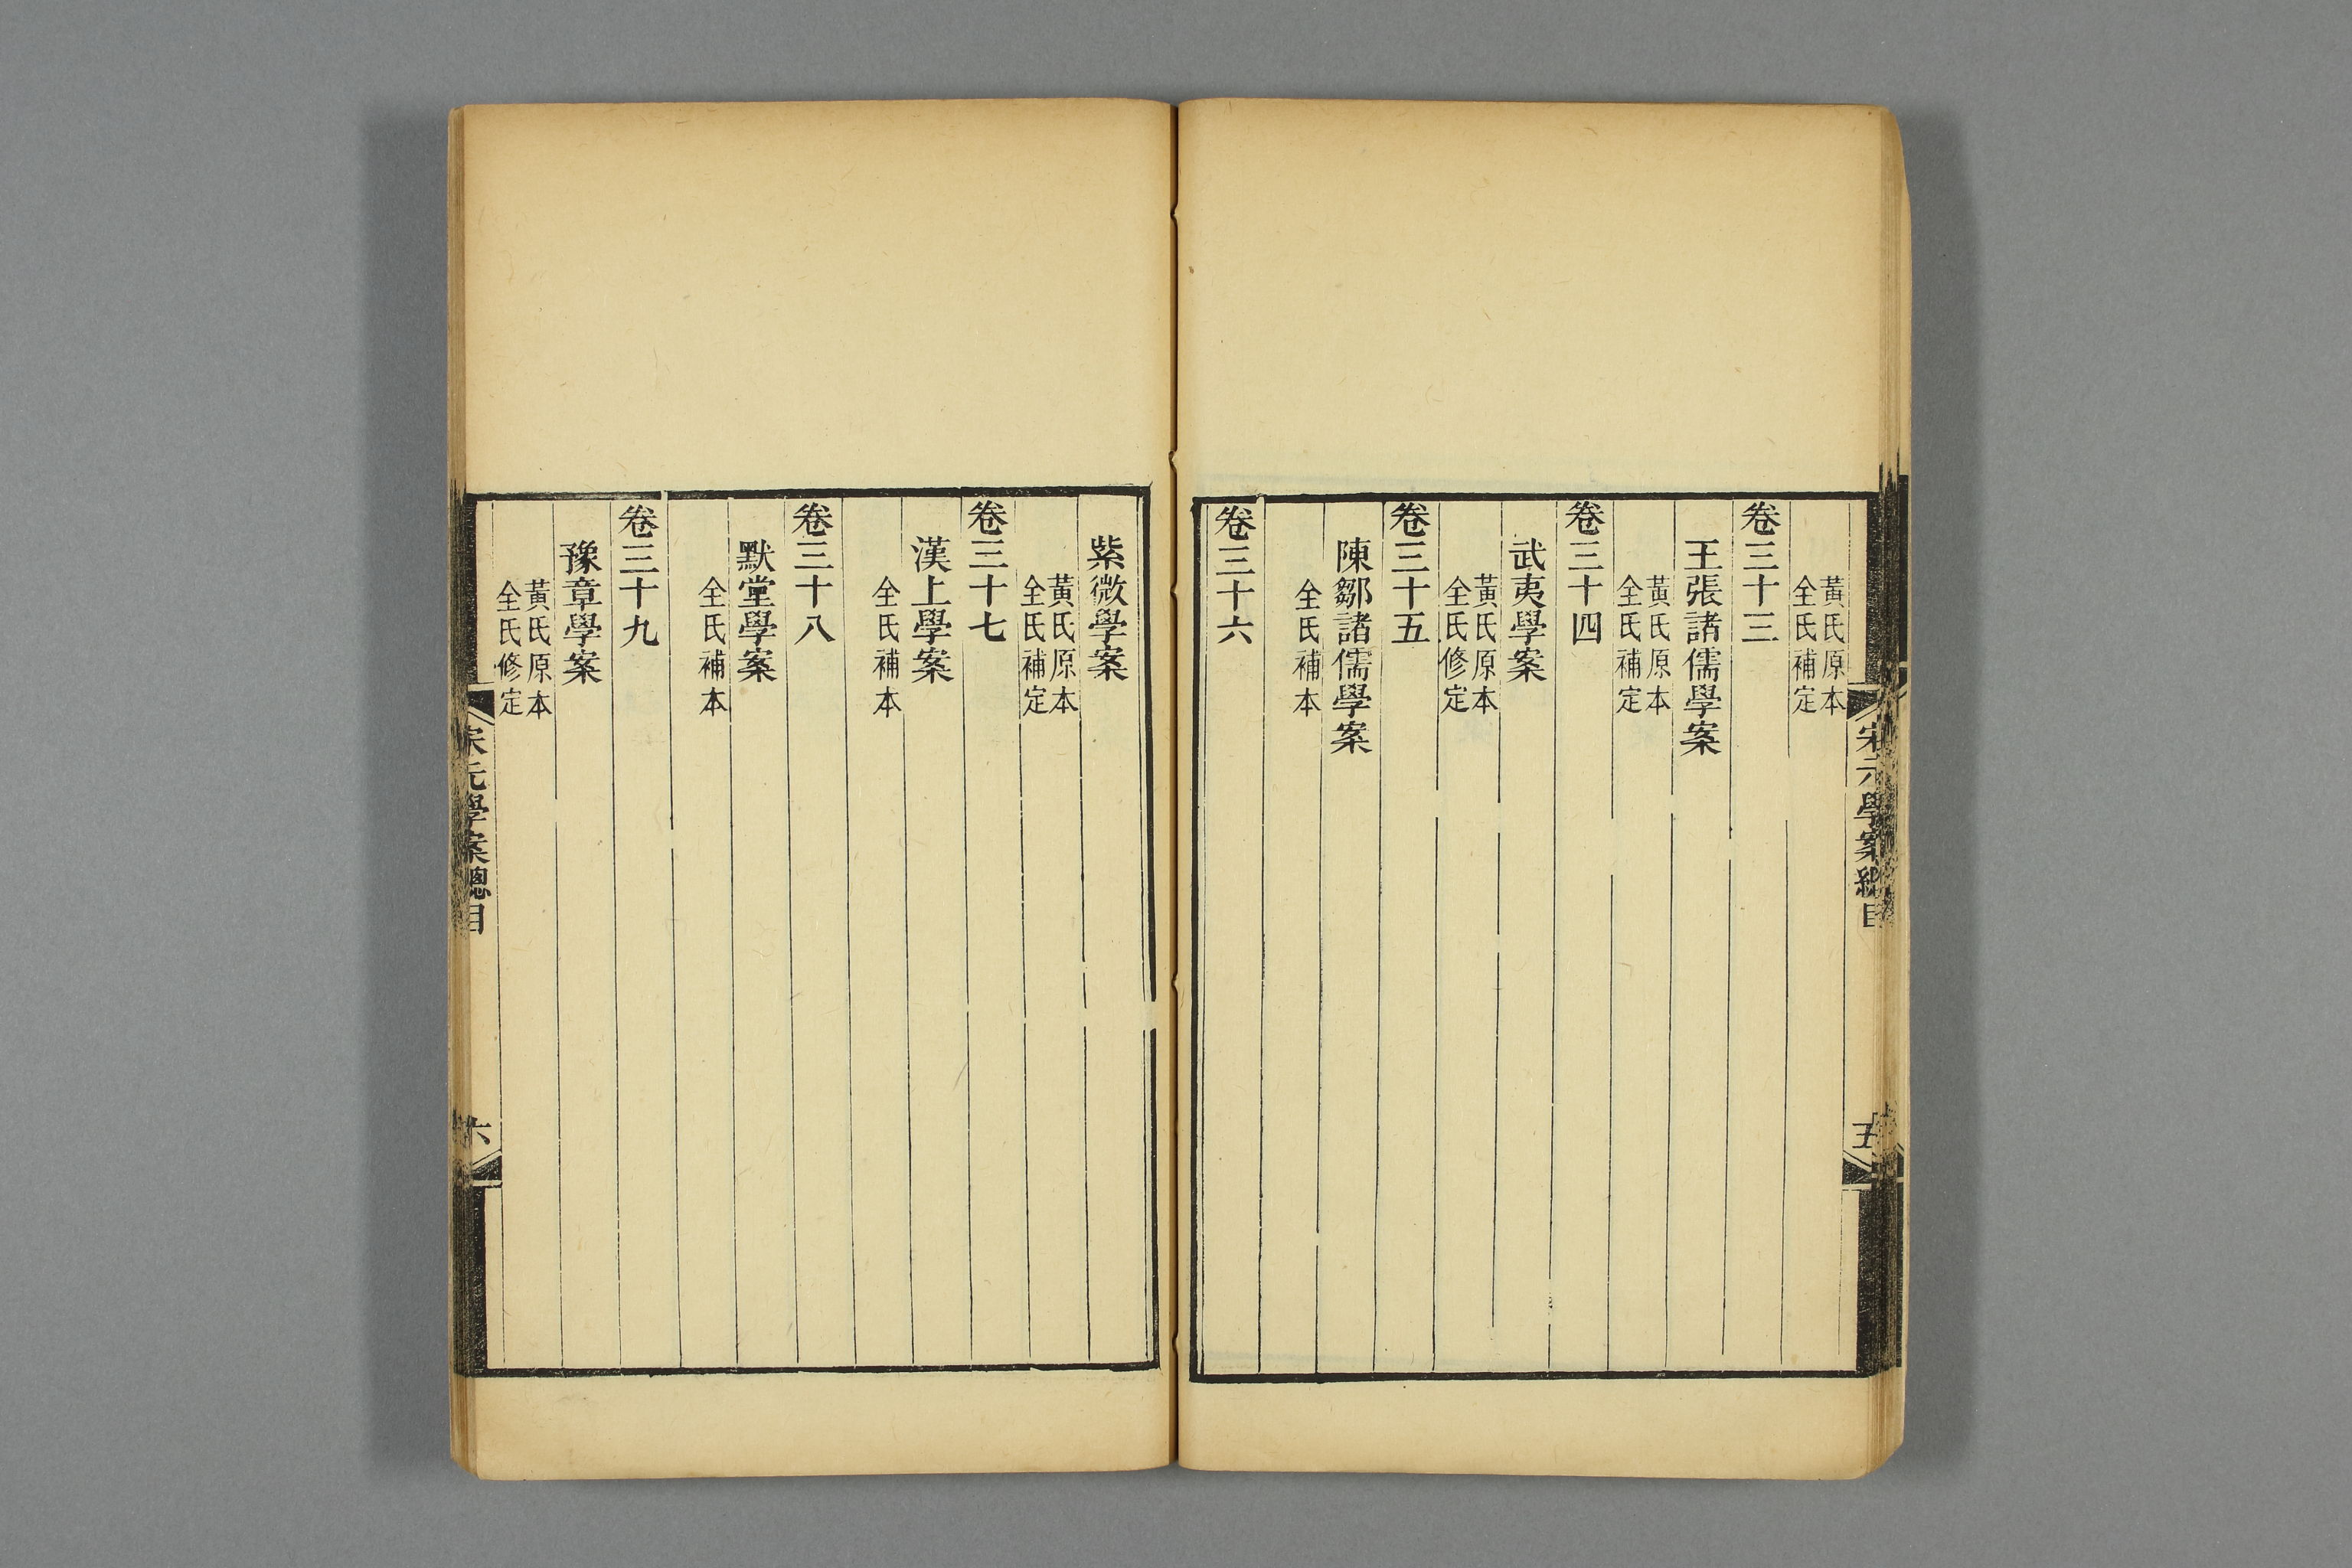 黃氏原本
全氏補定
卷三十三
王張諸儒學案
黃氏原本
全氏補定
卷三十四
武夷學案
黃氏原本
全氏修定
卷三十五
陳鄒諸儒學案
全氏補本
卷三十六
宋元學案總目
五
紫微學案
黃氏原本
全氏補定
卷三十七
漢上學案
全氏補本
卷三十八
默堂學案
全氏補本
卷三十九
豫章學案
黃氏原本
全氏修定
宋元學案總目
六